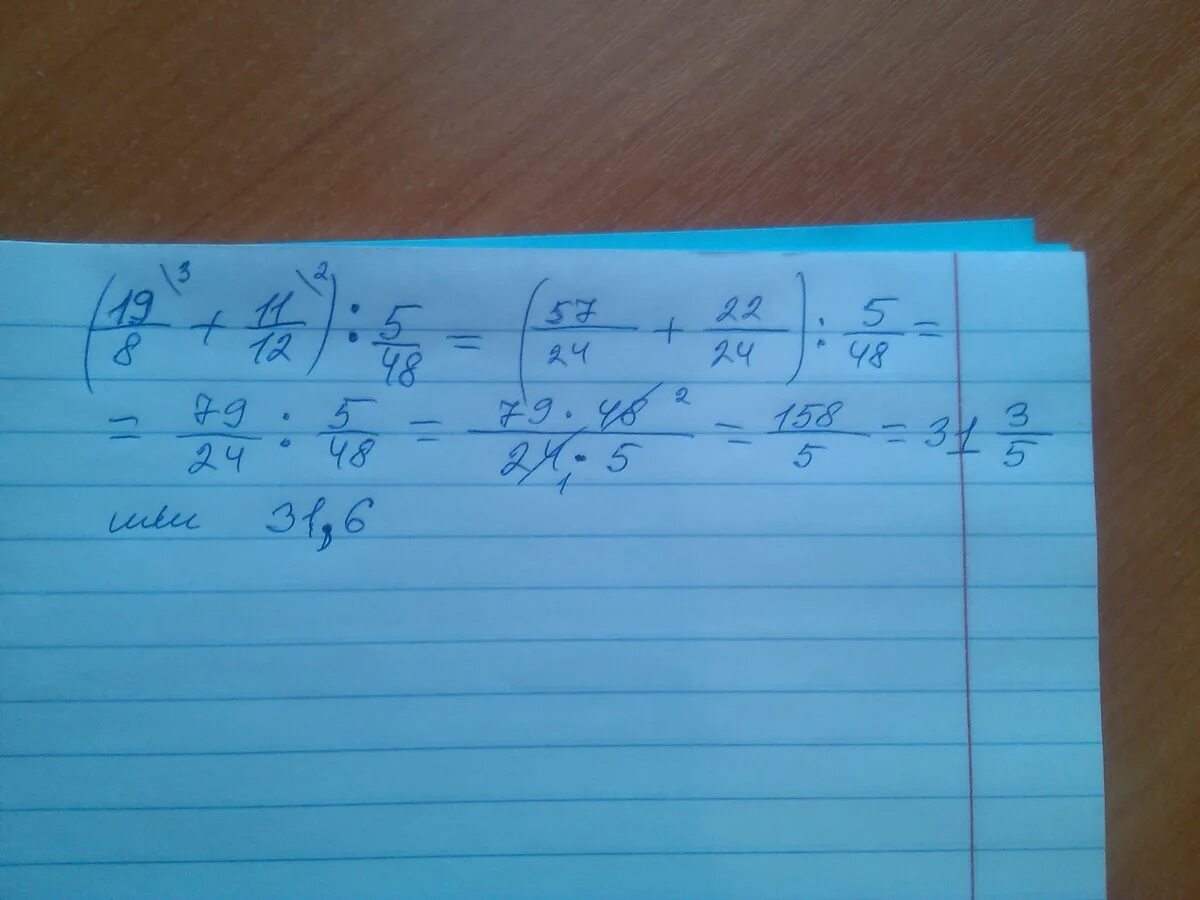 (19/8 \3 + 11/12 \2) : 5/48 = (57/24 + 22/24) : 5/48 =
= 79/24 : 5/48 = 79 · 48 2/24 1 · 5 = 158/5 = 31 3/5
или 31,6